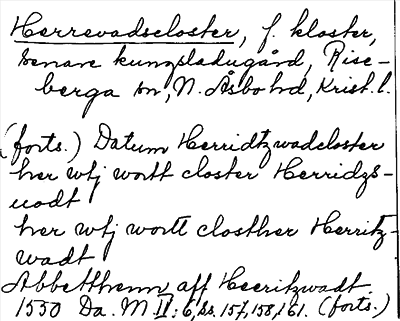 Herrevadscloster, f. kloster,
senare kungsladugård, Rise-
berga sn, N. Åsbo hd, Krist. l.
(forts.) Datum Herridtzwadcloster
her wtj wortt closter Herridzs-
uodt
her wtj wortt closther Herritz-
wadt
Abbetthenn aff Heeritzwadt
1550 Da. M II: 6, ss. 157, 158, 161. (forts.)